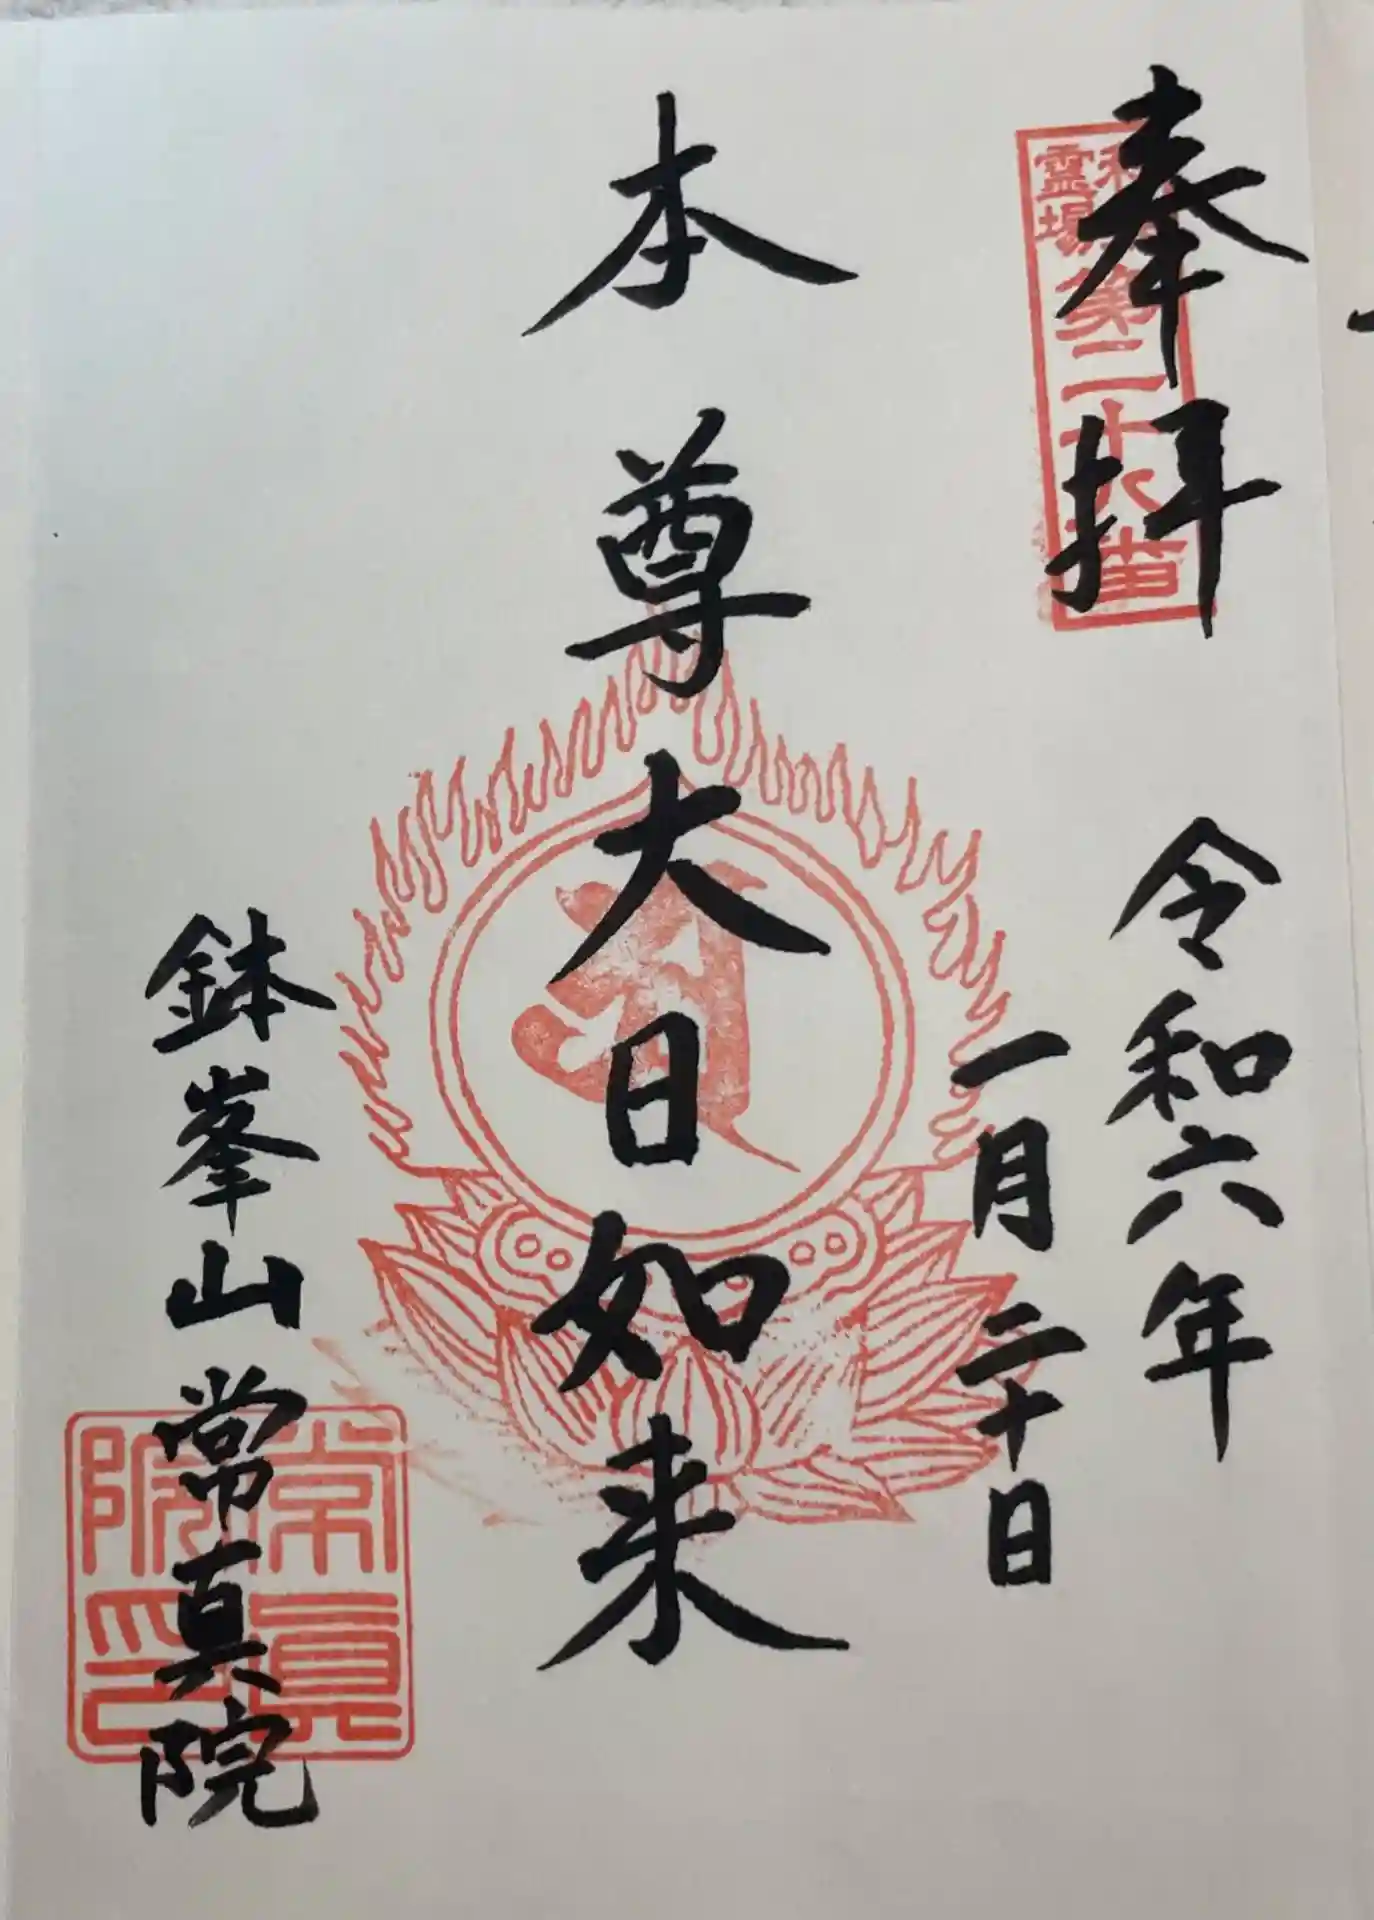 奉拝
令和六年
一月二十日
本尊大日如来
鉢峯山常真院
霊場
第二十六番
常真院印